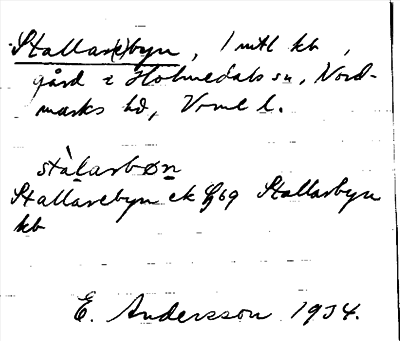 Stallar(e)byn, 1 mtl kb,
gård i Holmedals sn, Nord-
marks hd, Vrml l.
stàlarbøn
Stallarebyn ek Gj 69 Stallarbyn
kb
E. Andersson 1934.